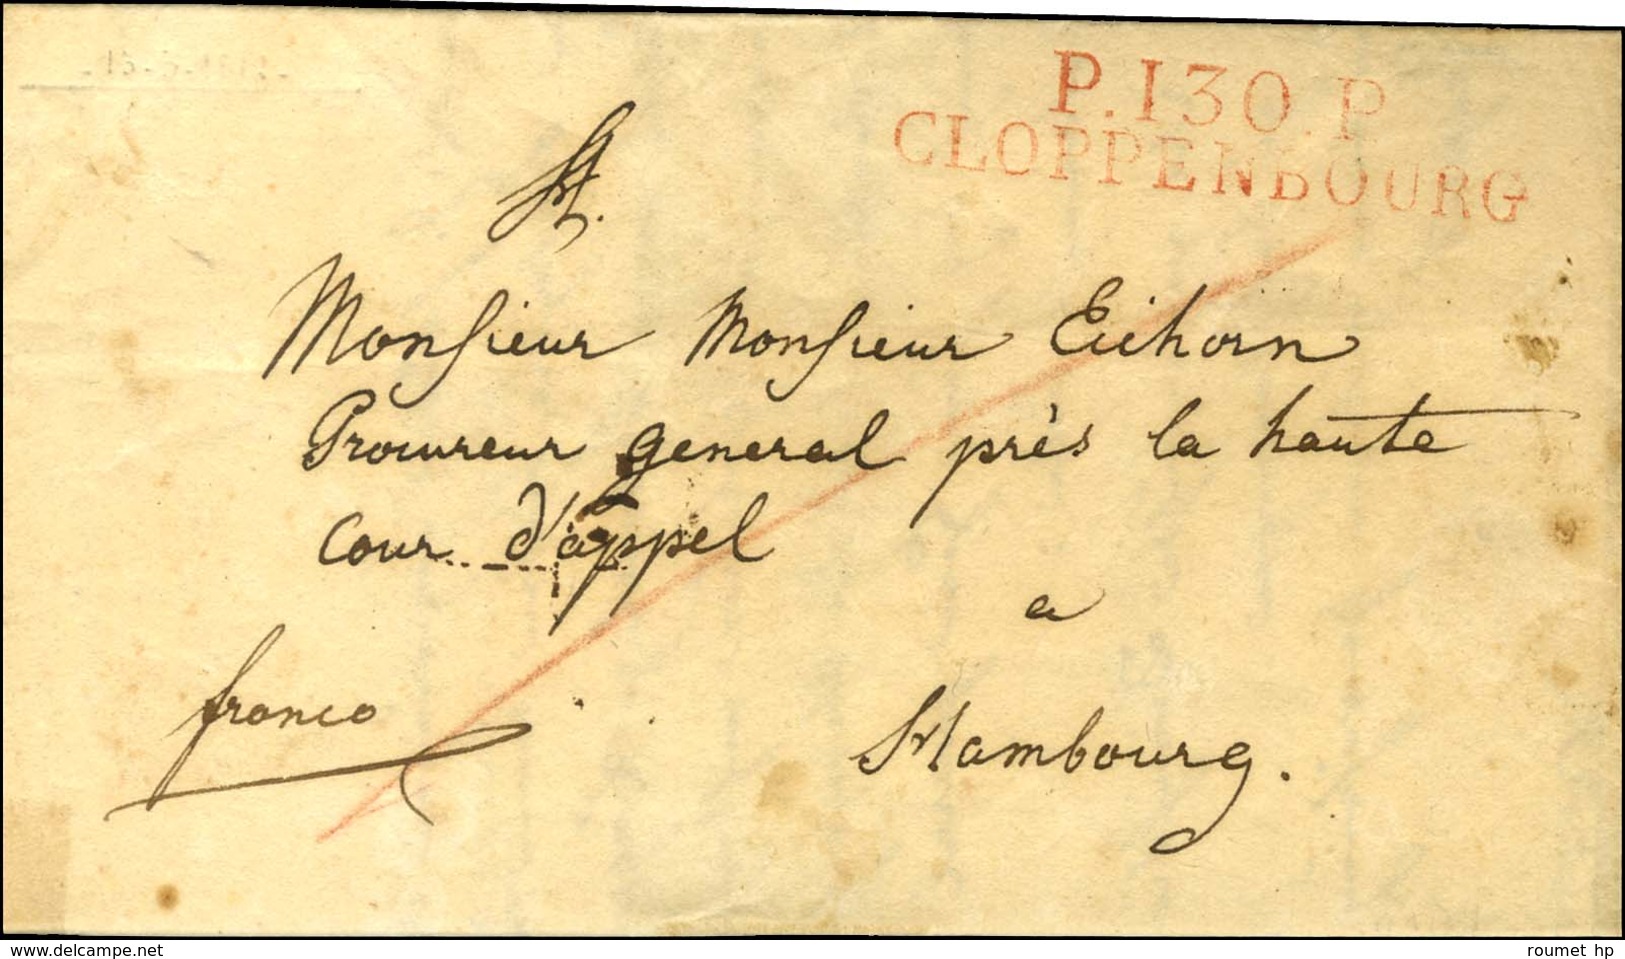 P.130.P
CLOPPENBOURG
Monsieur Monsieur Eichorn
Procureur general près la haute
cour d'appel
a
Hambourg.
franco
delcampe.net
roumet hp